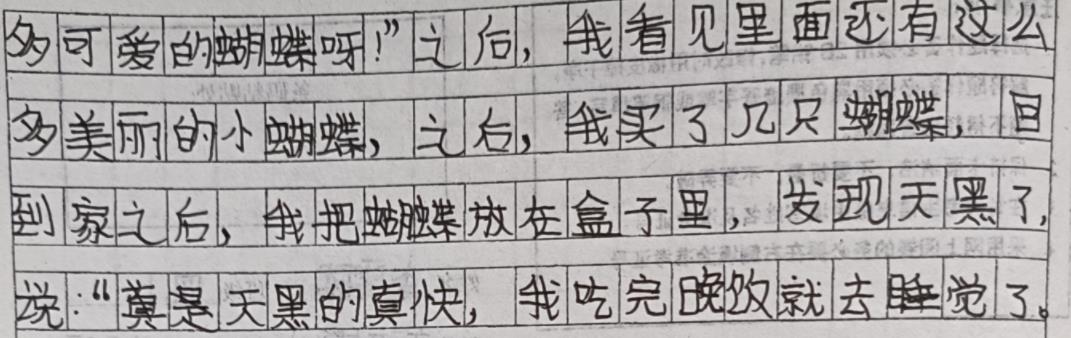 多可爱的蝴蝶呀!”之后,我看见里面还有这么
多美丽的小蝴蝶,之后,我买了几只蝴蝶,目
到家之后,我把蝴蝶放在盒子里,发现天黑了,
说:“真是天黑的真快,我吃完晚就去睡觉了。